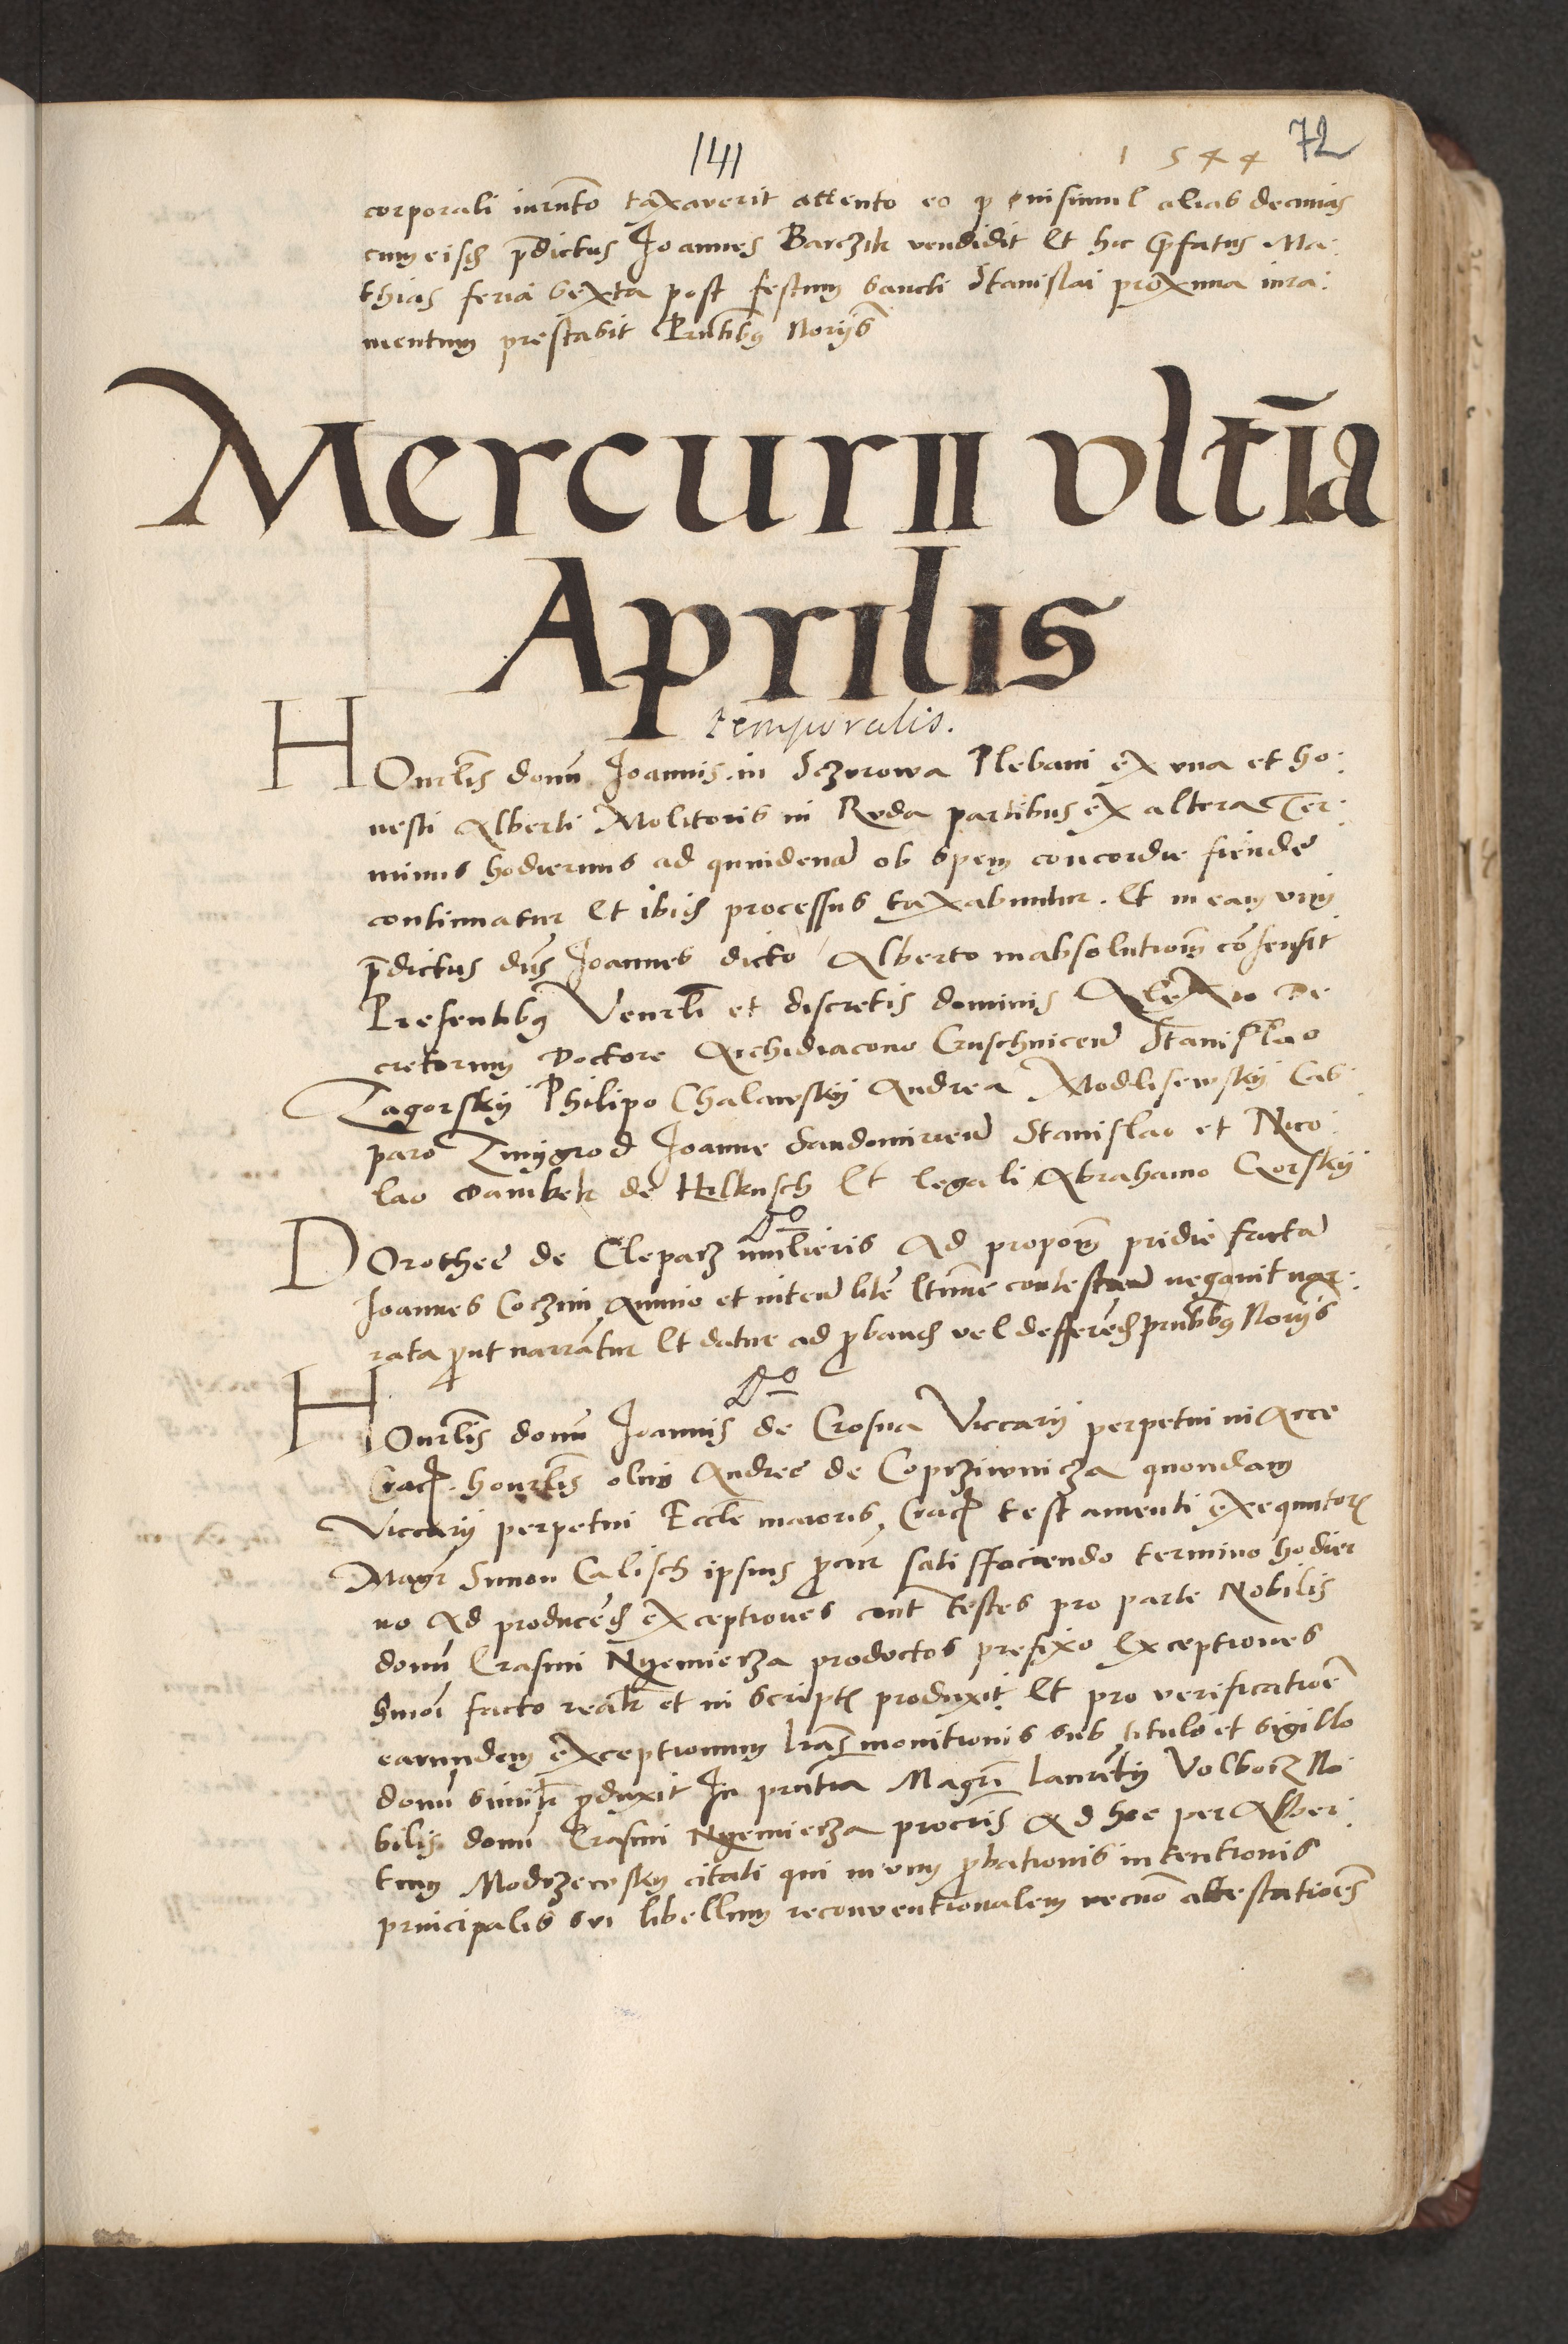 141
1544 72
corporali iurnto taxaverit attento eo q insimul alias decimas
cum eisd pdictus Joannes Barczik vendidit Et hic Prefatus Ma:
thias feria sexta post festum sancti Stanislai proxima iura:
mentum prestabit Prntibus Noriis
Mercurii vltia
Aprilis
temporalis.
HOnrlis domi Joannis in Sczvrowa Plebani ex vna et ho:
nesti Alberti Molitoris in Rvda partibus ex altera Ter:
minus hodiernus ad quindena ob spem concordie fiende
continuatur Et ibid processus taxabuntur. Et in eam vim
pdictus dus Joannes dicto Alberto in absolutiom cosensit
Presentibus Venrli et discretis dominis Alexio De
cretorum Doctore Archidiacono Stanislao
Zagorsky Philipo Chalawsky Andrea Modlisewsky Cas:
paro Zmygrod Joanne Sandomirien Stanislao et Nico:
lao Dambek de Helkusch Et legali Abrahamo Gorsky
Do
DOrothee de Cleparz mulieris Ad propom pridie facta
Joannes Coczin animo et inten lite ltime contestan negavit nar:
rata put narrantur Et datur ad pband vel defferend prntibus Noriis
Do
HOnrlis domi Joannis de Crosna Viccarii perpetui in Arce
Crac. honrlis olim Andree de Coprziwnicza quondam
Viccarii perpetui Eccle maioris Crac testamenti exequutor
Magr Simon Calisch ipsius pcur satisffaciendo termino hodier
no Ad producend exceptiones cont testes pro parte Nobilis
domi Erasmi Nyemiecza productos prefixo Exceptiones
hmoi facto realr et in script produxit Et pro verificatioe
earumdem exceptionum lras monitionis sub titulo et sigillo
domi produxit In prntia Magri laurentii Volborz No
bilis domi Erasmi Nyemiecza procris Ad hoc per Alber:
tum Modrzewsky citati qui in vim pbationis intentionis
principalis svi libellum reconventionalem necno attestatioes